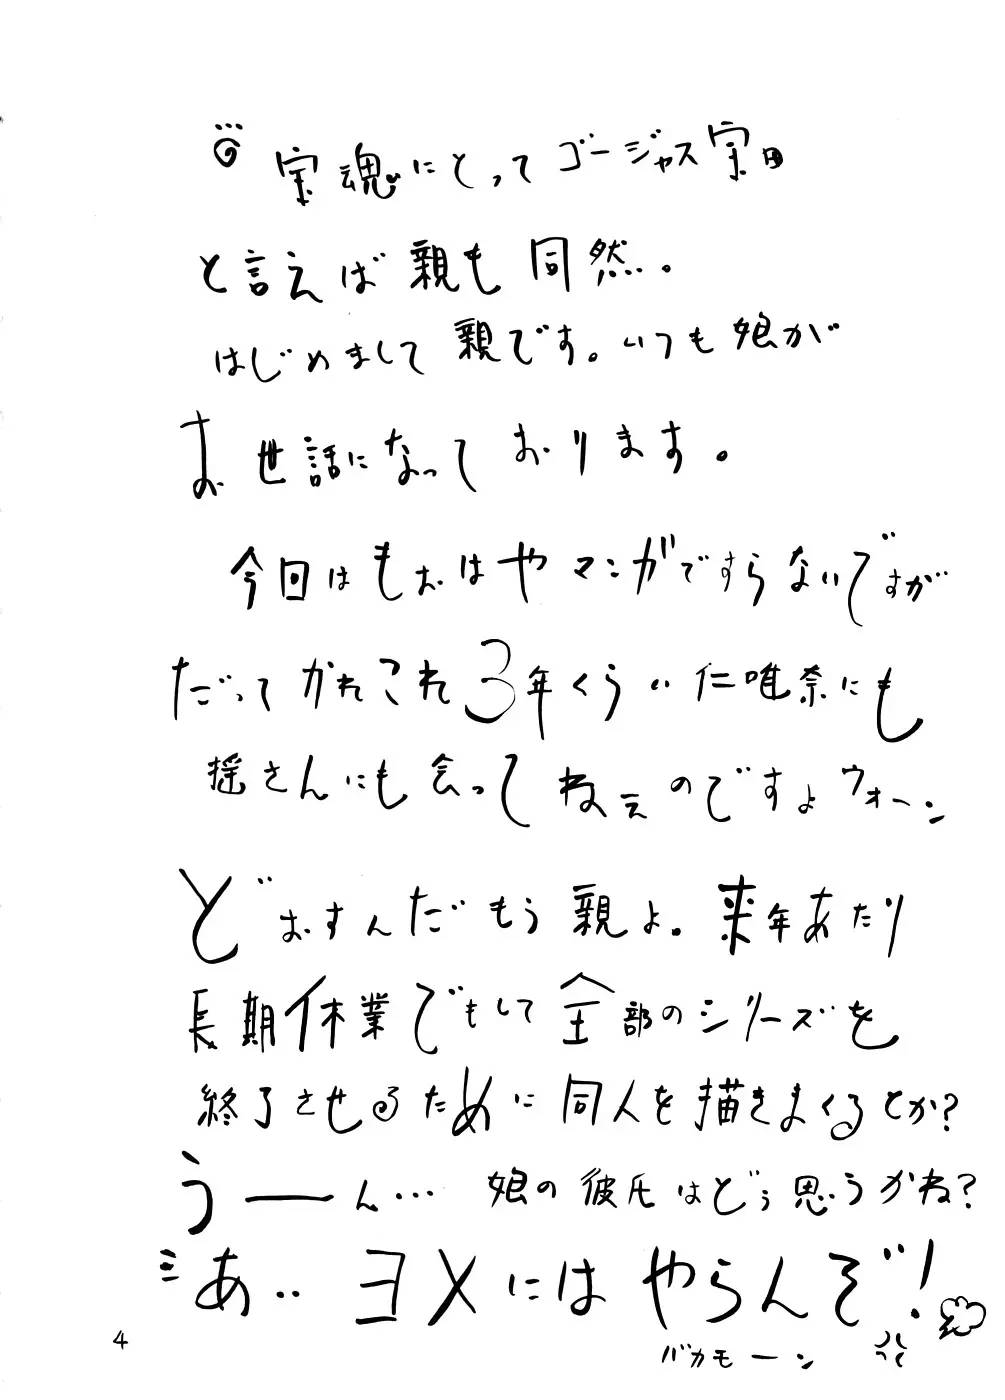 宝魂にとってゴージャス宝田
と言えば親も同然。
はじめまして親です。いつも娘が
お世話になっております。
今回はもおはやマンガですらないですが
だってかれこれ3年くらい仁唯奈にも
揺さんにも会ってねぇのですよウォーン
どおすんだもう親よ。来年あたり
長期休業でもして全部のシリーズを
終了させるために同人を描きまくるとか?
うーん… 娘の彼氏はどう思うかね?
あ‥ヨメにはやらんぞ!
バカモーン
4